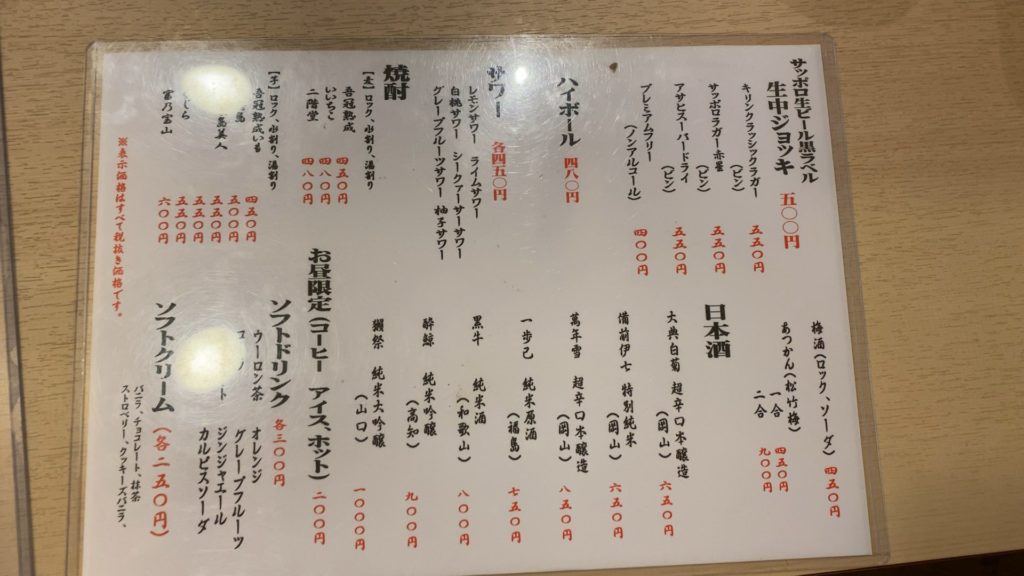 サッポロ生ビール黒ラベル
生中ジョッキ 五〇〇円
キリンクラシックラガー
(ビン) 五五〇円
サッポロラガー赤星
(ビン) 五五〇円
アサヒスーパードライ
(ビン) 五五〇円
プレミアムフリー
(ノンアルコール) 四〇〇円
ハイボール 四八〇円
サワー 各四五〇円
レモンサワー ライムサワー
白桃サワー シークァーサーサワー
グレープフルーツサワー 柚子サワー
焼酎
【麦】ロック、水割り、湯割り
吾冠熟成 四五〇円
いいちこ 四八〇円
二階堂 四八〇円
【芋】ロック、水割り、湯割り
吾冠熟成いも 四五〇円
五〇〇円
五五〇円
五五〇円
富乃宝山 六〇〇円
※表示価格はすべて税抜き価格です。
梅酒(ロック、ソーダ) 四五〇円
あつかん(松竹梅)
一合 四五〇円
二合 九〇〇円
日本酒
大典白菊 超辛口本醸造
(岡山) 六五〇円
備前伊七 特別純米
(岡山) 六五〇円
萬年雪 超辛口本醸造
(岡山) 八五〇円
一歩己 純米原酒
(福島) 七五〇円
黒牛 純米酒
(和歌山) 八〇〇円
酔鯨 純米吟醸
(高知) 九〇〇円
獺祭 純米大吟醸
(山口) 一〇〇〇円
お昼限定(コーヒー アイス、ホット) 二〇〇円
ソフトドリンク 各三〇〇円
ウーロン茶 オレンジ
グレープフルーツ
ジンジャエール
カルピスソーダ
ソフトクリーム (各二五〇円)
バニラ、チョコレート、抹茶
ストロベリー、クッキーズバニラ、